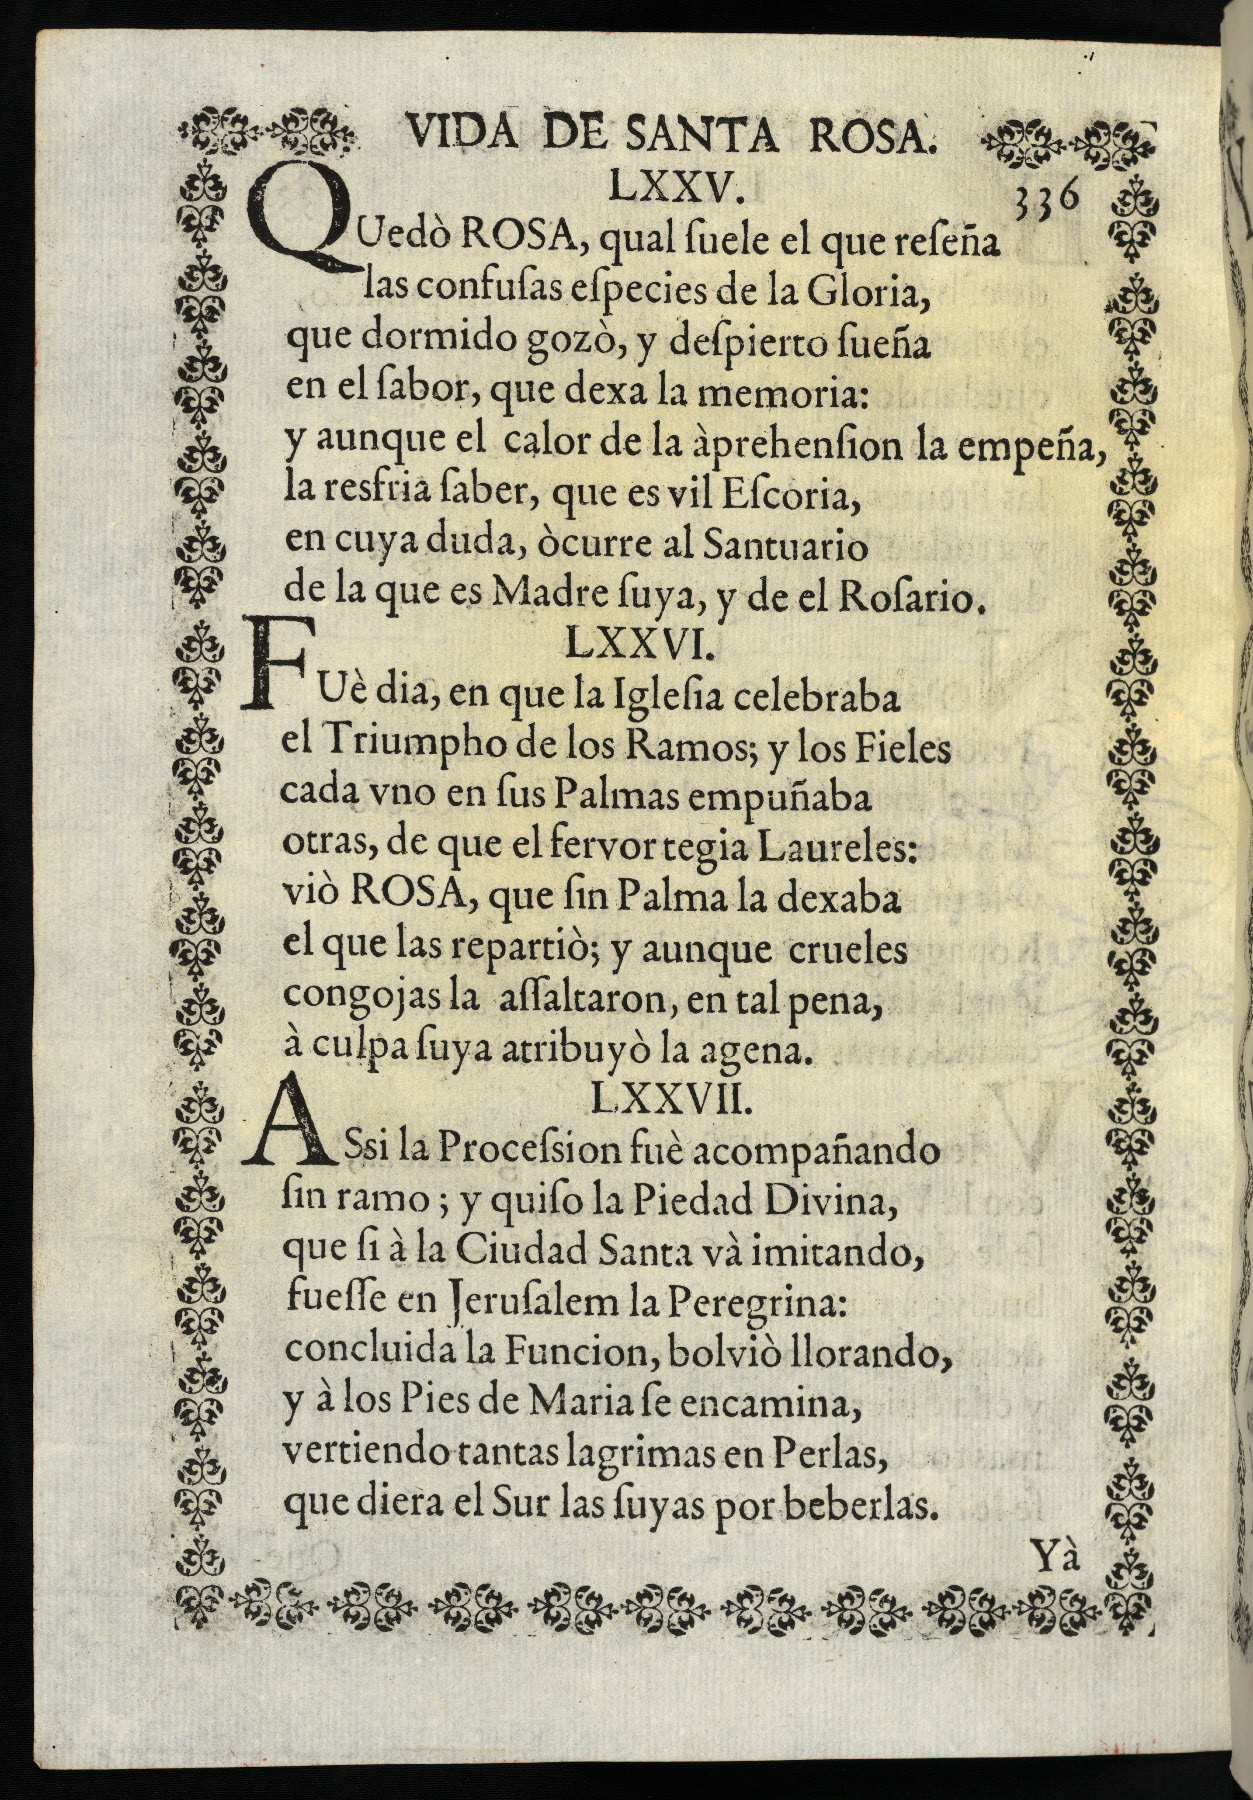 VIDA DE SANTA ROSA.
LXXV.
336
QUedò ROSA, qual ſuele el que reſeña
las confuſas eſpecies de la Gloria,
que dormido gozò, y deſpierto ſueña
en el ſabor, que dexa la memoria:
y aunque el calor de la àprehenſion la empeña,
la resfria ſaber, que es vil Eſcoria,
en cuya duda, òcurre al Santuario
de la que es Madre ſuya, y de el Roſario.
LXXVI.
FUè dia, en que la Igleſia celebraba
el Triumpho de los Ramos; y los Fieles
cada vno en ſus Palmas empuñaba
otras, de que el fervor tegia Laureles:
viò ROSA, que ſin Palma la dexaba
el que las repartiò; y aunque crueles
congojas la aſſaltaron, en tal pena,
à culpa ſuya atribuyò la agena.
LXXVII.
ASsi la Proceſsion fuè acompañando
ſin ramo; y quiſo la Piedad Divina,
que ſi à la Ciudad Santa và imitando,
fueſſe en Jeruſalem la Peregrina:
concluida la Funcion, bolviò llorando,
y à los Pies de Maria ſe encamina,
vertiendo tantas lagrimas en Perlas,
que diera el Sur las ſuyas por beberlas.
Yà